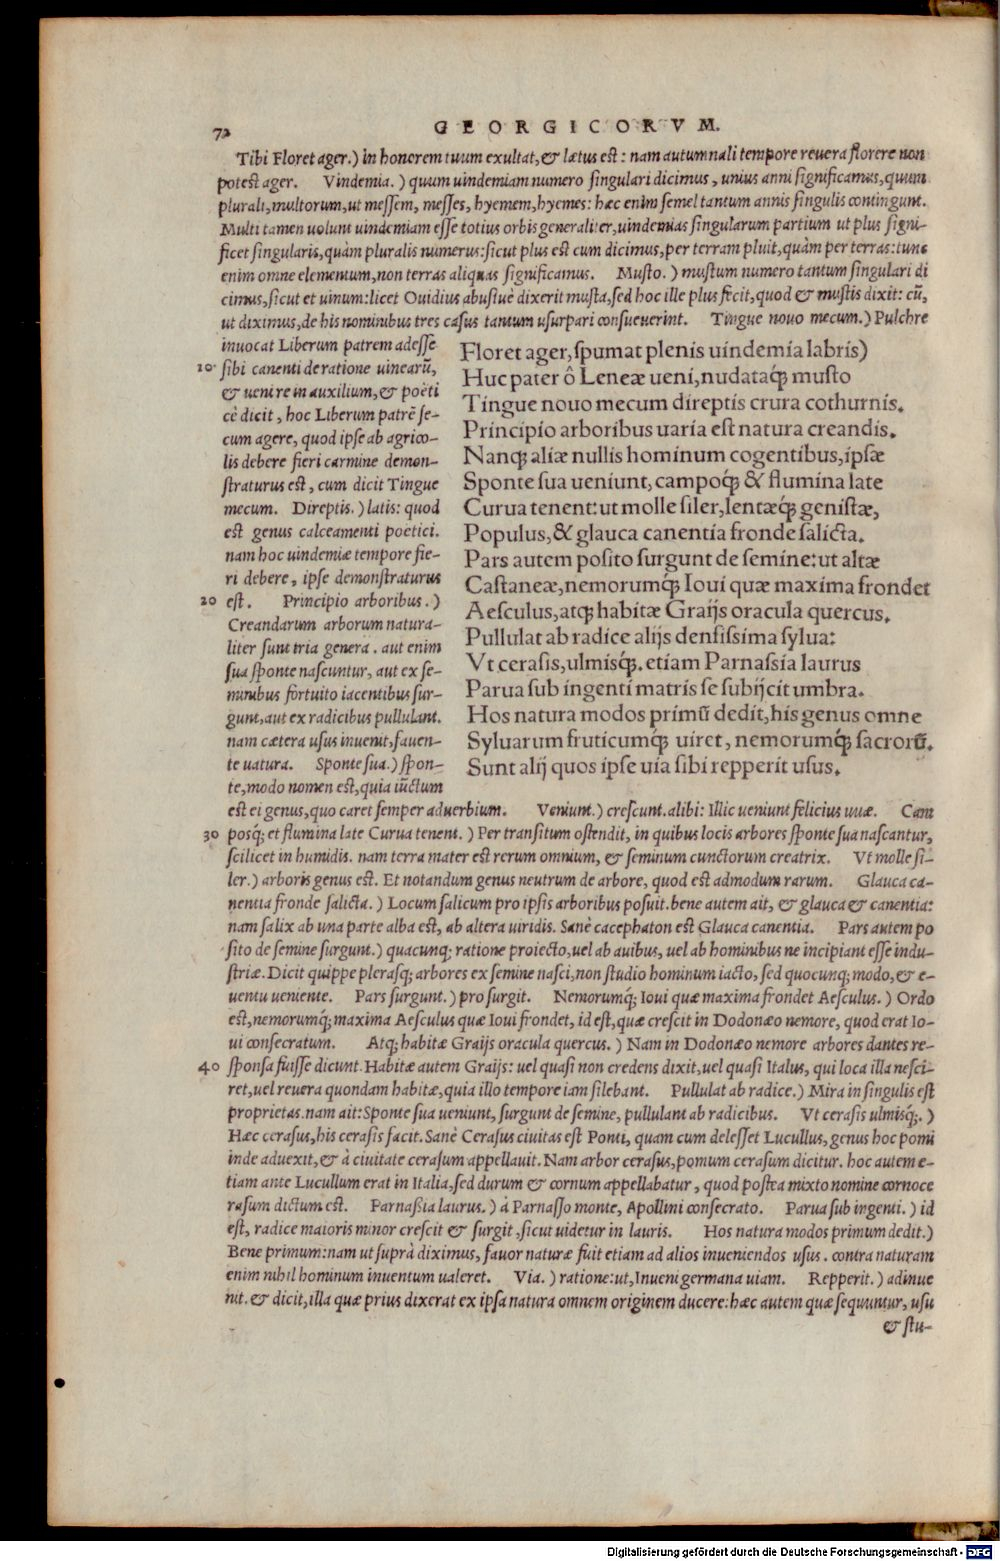 72
GEORGICORVM.
Tibi Floret ager.) in honorem tuum exultat, & lætus est: nam autumnali tempore reuera florere non
potest ager. Vindemia.) quum uindemiam numero singulari dicimus, unius anni significamus, quum
plurali, multorum, ut messem, messes, hyemem, hyemes: hæc enim semel tantum annis singulis contingunt.
Multi tamen uolunt uindemiam esse totius orbis generaliter, uindemias singularum partium ut plus signi-
ficet singularis, quàm pluralis numerus: sicut plus est cum dicimus, per terram pluit, quàm per terras: tunc
enim omne elementum, non terras aliquas significamus. Musto.) mustum numero tantum singulari di
cimus, sicut et uinum: licet Ouidius abusiuè dixerit musta, sed hoc ille plus fecit, quod & mustis dixit: cũ,
ut diximus, de his nominibus tres casus tantum usurpari consueuerint. Tingue nouo mecum.) Pulchre
inuocat Liberum patrem adesse
10 sibi canenti de ratione uinearũ,
& uenire in auxilium, & poëti
cè dicit, hoc Liberum patrē se-
cum agere, quod ipse ab agrico-
lis debere fieri carmine demon-
straturus est, cum dicit Tingue
mecum. Direptis.) latis: quod
est genus calceamenti poëtici.
nam hoc uindemiæ tempore fie-
ri debere, ipse demonstraturus
20 est. Principio arboribus.)
Creandarum arborum natura-
liter sunt tria genera. aut enim
sua sponte nascuntur, aut ex se-
minibus fortuito iacentibus sur-
gunt, aut ex radicibus pullulant.
nam cætera usus inuenit, fauen-
te natura. Sponte sua.) spon-
te, modo nomen est, quia iũctum
Floret ager, spumat plenis uindemia labris)
Huc pater ô Lenæe ueni, nudataq́; musto
Tingue nouo mecum direptis crura cothurnis.
Principio arboribus uaria est natura creandis.
Nanq; aliæ nullis hominum cogentibus, ipsæ
Sponte sua ueniunt, campoq́; & flumina late
Curua tenent: ut molle siler, lentæq́; genistæ,
Populus, & glauca canentia fronde salicta.
Pars autem posito surgunt de semine: ut altæ
Castaneæ, nemorumq́; Ioui quæ maxima frondet
Aesculus, atq; habitæ Graijs oracula quercus.
Pullulat ab radice alijs densissima sylua:
Vt cerasis, ulmisq́;. etiam Parnassia laurus
Parua sub ingenti matris se subijcit umbra.
Hos natura modos primũ dedit, his genus omne
Syluarum fruticumq́; uiret, nemorumq́; sacrorũ.
Sunt alij quos ipse uia sibi repperit usus.
est ei genus, quo caret semper aduerbium. Veniunt.) crescunt. alibi: Illic ueniunt felicius uuæ. Cam
30 posq́; et flumina late Curua tenent.) Per transitum ostendit, in quibus locis arbores sponte sua nascantur,
scilicet in humidis. nam terra mater est rerum omnium, & seminum cunctorum creatrix. Vt molle si-
ler.) arboris genus est. Et notandum genus neutrum de arbore, quod est admodum rarum. Glauca ca-
nentia fronde salicta.) Locum salicum pro ipsis arboribus posuit. bene autem ait, & glauca & canentia:
nam salix ab una parte alba est, ab altera uiridis. Sanè cacephaton est Glauca canentia. Pars autem po
sito de semine surgunt.) quacunq; ratione proiecto, uel ab auibus, uel ab hominibus ne incipiant esse indu-
striæ. Dicit quippe plerasq; arbores ex semine nasci, non studio hominum iacto, sed quocunq; modo, & e-
uentu ueniente. Pars surgunt.) pro surgit. Nemorumq́; Ioui quæ maxima frondet Aesculus.) Ordo
est, nemorumq́; maxima Aesculus quæ Ioui frondet, id est, quæ crescit in Dodonæo nemore, quod erat Io-
ui consecratum. Atq; habitæ Graijs oracula quercus.) Nam in Dodonæo nemore arbores dantes re-
40 sponsa fuisse dicunt. Habitæ autem Graijs: uel quasi non credens dixit, uel quasi Italus, qui loca illa nesci-
ret, uel reuera quondam habitæ, quia illo tempore iam silebant. Pullulat ab radice.) Mira in singulis est
proprietas. nam ait: Sponte sua ueniunt, surgunt de semine, pullulant ab radicibus. Vt cerasis ulmisq́;.)
Hæc cerasus, his cerasis facit. Sanè Cerasus ciuitas est Ponti, quam cum delesset Lucullus, genus hoc pomi
inde aduexit, & à ciuitate cerasum appellauit. Nam arbor cerasus, pomum cerasum dicitur. hoc autem e-
tiam ante Lucullum erat in Italia, sed durum & cornum appellabatur, quod postea mixto nomine cornoce
rasum dictum est. Parnaßia laurus.) à Parnasso monte, Apollini consecrato. Parua sub ingenti.) id
est, radice maioris minor crescit & surgit, sicut uidetur in lauris. Hos natura modos primum dedit.)
Bene primum: nam ut suprà diximus, fauor naturæ fuit etiam ad alios inueniendos usus. contra naturam
enim nihil hominum inuentum ualeret. Via.) ratione: ut, Inueni germana uiam. Repperit.) adinue
nit. & dicit, illa quæ prius dixerat ex ipsa natura omnem originem ducere: hæc autem quæ sequuntur, usu
& stu-
Digitalisierung gefördert durch die Deutsche Forschungsgemeinschaft - DFG